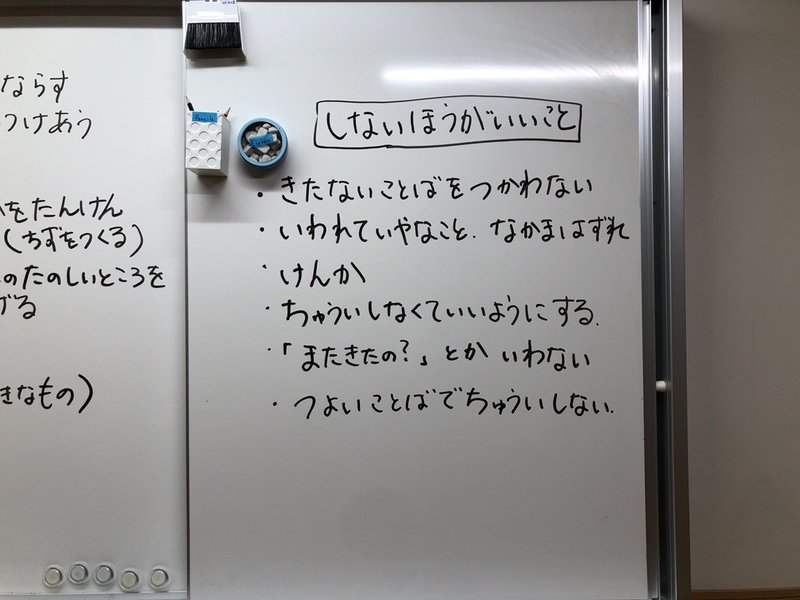 ならす
つけあう
をたんけん
(ちずをつくる)
のたのしいところを
げる
きなもの)
Pencils
しないほうがいいこと
・きたないことばをつかわない
・いわれていやなこと、なかまはずれ
・けんか
・ちゅういしなくていいようにする。
・「またきたの?」とか いわない
・つよいことばでちゅういしない。